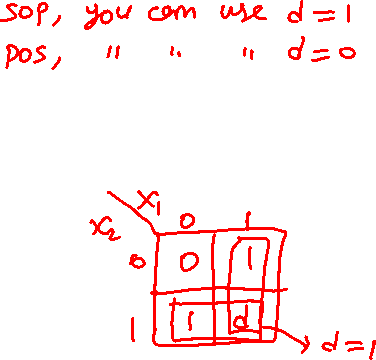 SOP, you can use d = 1
POS, " " " d = 0
X1
X2 0 1
0 0 1
1 1 d
d = 1